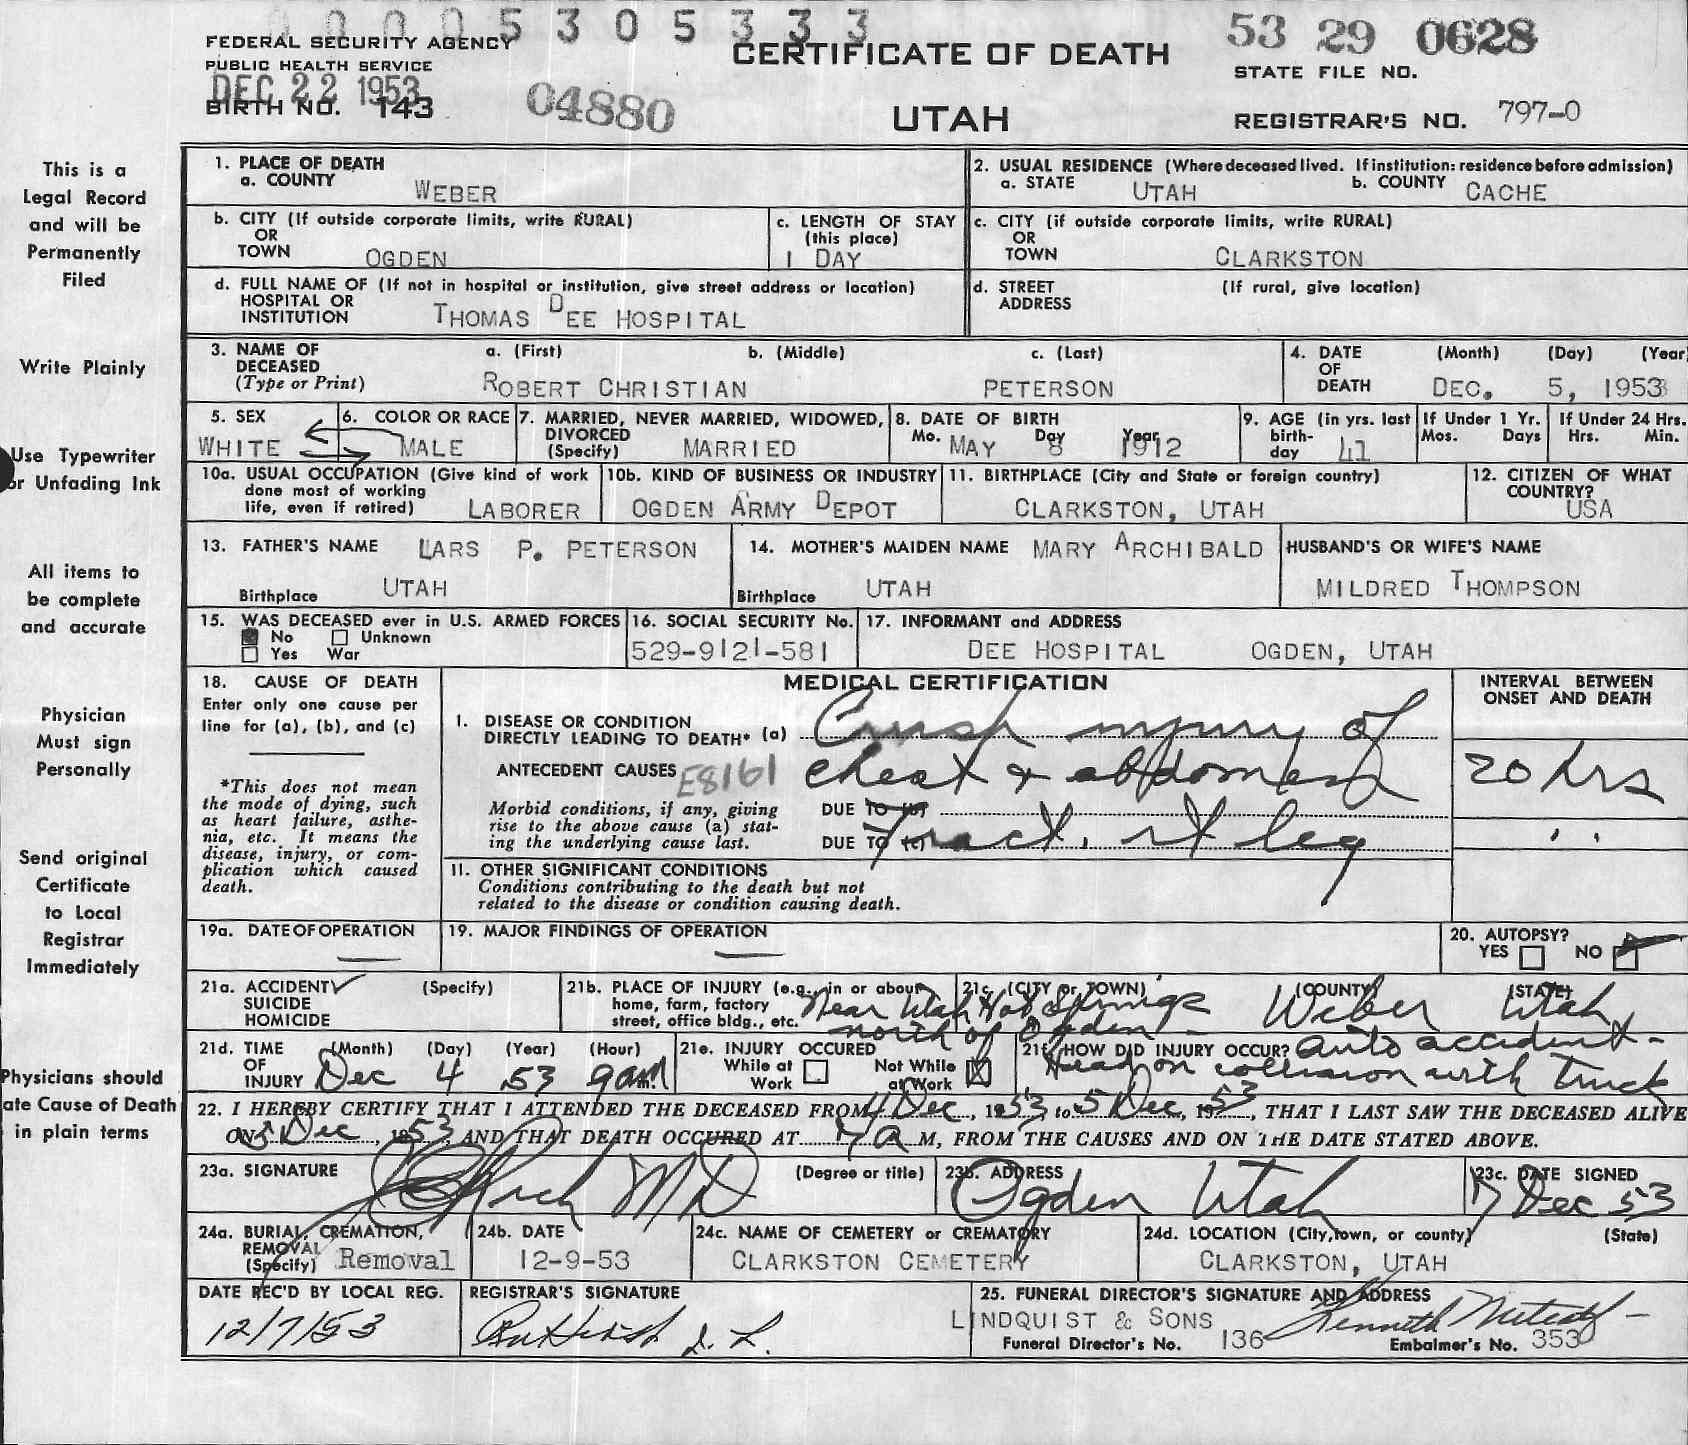 0 0 0 0 5 3 0 5 3 3 3
FEDERAL SECURITY AGENCY
PUBLIC HEALTH SERVICE
DEC 22 1953
BIRTH NO. 143
04880
CERTIFICATE OF DEATH
UTAH
53 29 0628
STATE FILE NO.
REGISTRAR'S NO. 797-0
This is a
Legal Record
and will be
Permanently
Filed
Write Plainly
Use Typewriter
or Unfading Ink
All items to
be complete
and accurate
Physician
Must sign
Personally
Send original
Certificate
to Local
Registrar
Immediately
Physicians should
ate Cause of Death
in plain terms
1. PLACE OF DEATH
a. COUNTY WEBER
2. USUAL RESIDENCE (Where deceased lived. If institution: residence before admission)
a. STATE UTAH b. COUNTY CACHE
b. CITY (If outside corporate limits, write RURAL)
OR
TOWN OGDEN
c. LENGTH OF STAY
(this place)
1 DAY
c. CITY (if outside corporate limits, write RURAL)
OR
TOWN CLARKSTON
d. FULL NAME OF (If not in hospital or institution, give street address or location)
HOSPITAL OR
INSTITUTION THOMAS DEE HOSPITAL
d. STREET (If rural, give location)
ADDRESS
3. NAME OF a. (First) b. (Middle) c. (Last)
DECEASED
(Type or Print) ROBERT CHRISTIAN PETERSON
4. DATE (Month) (Day) (Year
OF
DEATH DEC. 5, 1953
5. SEX
WHITE
6. COLOR OR RACE
MALE
7. MARRIED, NEVER MARRIED, WIDOWED,
DIVORCED
(Specify) MARRIED
8. DATE OF BIRTH
Mo. MAY Day 8 Year 1912
9. AGE (in yrs. last
birth-
day 41
If Under 1 Yr.
Mos. Days
If Under 24 Hrs.
Hrs. Min.
10a. USUAL OCCUPATION (Give kind of work
done most of working
life, even if retired) LABORER
10b. KIND OF BUSINESS OR INDUSTRY
OGDEN ARMY DEPOT
11. BIRTHPLACE (City and State or foreign country)
CLARKSTON, UTAH
12. CITIZEN OF WHAT
COUNTRY?
USA
13. FATHER'S NAME LARS P. PETERSON
Birthplace UTAH
14. MOTHER'S MAIDEN NAME MARY ARCHIBALD
Birthplace UTAH
HUSBAND'S OR WIFE'S NAME
MILDRED THOMPSON
15. WAS DECEASED ever in U.S. ARMED FORCES
No Unknown
Yes War
16. SOCIAL SECURITY No.
529-9121-581
17. INFORMANT and ADDRESS
DEE HOSPITAL OGDEN, UTAH
18. CAUSE OF DEATH
Enter only one cause per
line for (a), (b), and (c)
*This does not mean
the mode of dying, such
as heart failure, asthe-
nia, etc. It means the
disease, injury, or com-
plication which caused
death.
MEDICAL CERTIFICATION
I. DISEASE OR CONDITION
DIRECTLY LEADING TO DEATH* (a) Crush injury of
ANTECEDENT CAUSES E8161 chest & abdomen
Morbid conditions, if any, giving
rise to the above cause (a) stat-
ing the underlying cause last.
DUE TO (b)
DUE TO (c) Fract. rt leg
INTERVAL BETWEEN
ONSET AND DEATH
20 hrs
" "
11. OTHER SIGNIFICANT CONDITIONS
Conditions contributing to the death but not
related to the disease or condition causing death.
19a. DATE OF OPERATION
—
19. MAJOR FINDINGS OF OPERATION
—
20. AUTOPSY?
YES NO
21a. ACCIDENT ✓ (Specify)
SUICIDE
HOMICIDE
21b. PLACE OF INJURY (e.g., in or about
home, farm, factory
street, office bldg., etc.
21c. (CITY or TOWN) (COUNTY) (STATE)
Near Utah Hot Springs Weber Utah
north of Ogden -
21d. TIME (Month) (Day) (Year) (Hour)
OF
INJURY Dec 4 53 9am m.
21e. INJURY OCCURED
While at Work Not While at Work
21f. HOW DID INJURY OCCUR? Auto accident -
Head on collision with truck
22. I HEREBY CERTIFY THAT I ATTENDED THE DECEASED FROM 4 Dec, 1953, to 5 Dec, 1953, THAT I LAST SAW THE DECEASED ALIVE
ON 5 Dec, 1953, AND THAT DEATH OCCURED AT 7 A M, FROM THE CAUSES AND ON THE DATE STATED ABOVE.
23a. SIGNATURE MD (Degree or title)
23b. ADDRESS
Ogden Utah
23c. DATE SIGNED
7 Dec 53
24a. BURIAL, CREMATION,
REMOVAL
(Specify) Removal
24b. DATE
12-9-53
24c. NAME OF CEMETERY or CREMATORY
CLARKSTON CEMETERY
24d. LOCATION (City, town, or county) (State)
CLARKSTON, UTAH
DATE REC'D BY LOCAL REG.
12/7/53
REGISTRAR'S SIGNATURE
25. FUNERAL DIRECTOR'S SIGNATURE AND ADDRESS
LINDQUIST & SONS Kenneth
Funeral Director's No. 136 Embalmer's No. 353